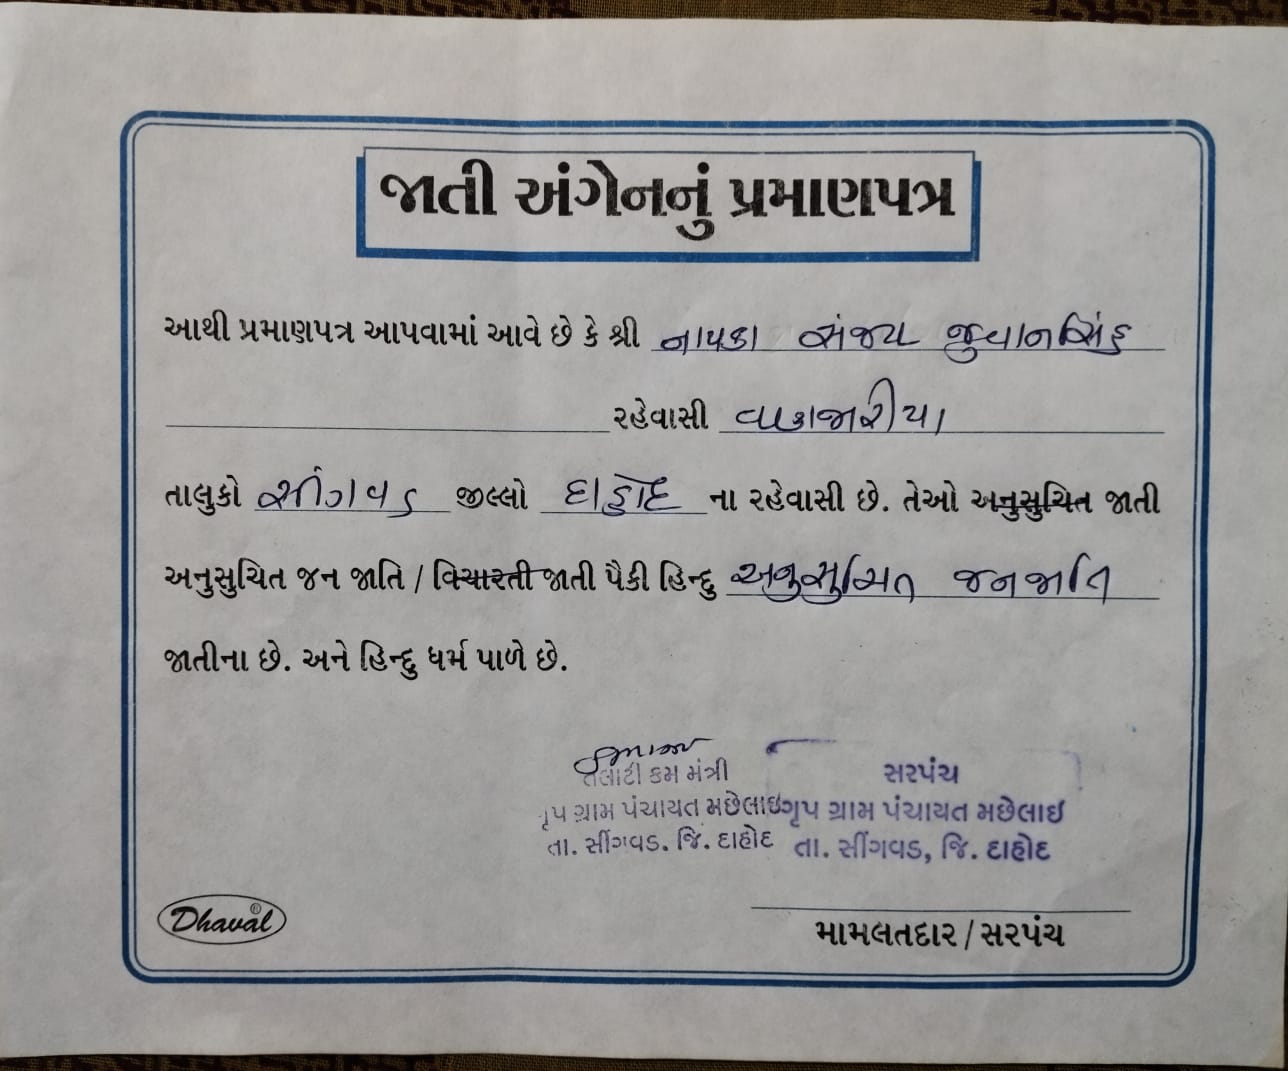 જાતી અંગેનનું પ્રમાણપત્ર
આથી પ્રમાણપત્ર આપવામાં આવે છે કે શ્રી નાયકા સંજય જુવાનસિંહ
રહેવાસી વાકાજારીયા
તાલુકો સીંગવડ જીલ્લો દાહોદ ના રહેવાસી છે. તેઓ અનુસુચિત જાતી
અનુસુચિત જન જાતિ / વિચારતી જાતી પૈકી હિન્દુ અનુસુચિત જનજાતિ
જાતીના છે. અને હિન્દુ ધર્મ પાળે છે.
તલાટી કમ મંત્રી
ગૃપ ગ્રામ પંચાયત મછેલાઇ
તા. સીંગવડ. જિ. દાહોદ
સરપંચ
ગૃપ ગ્રામ પંચાયત મછેલાઇ
તા. સીંગવડ, જિ. દાહોદ
Dhaval®
મામલતદાર / સરપંચ